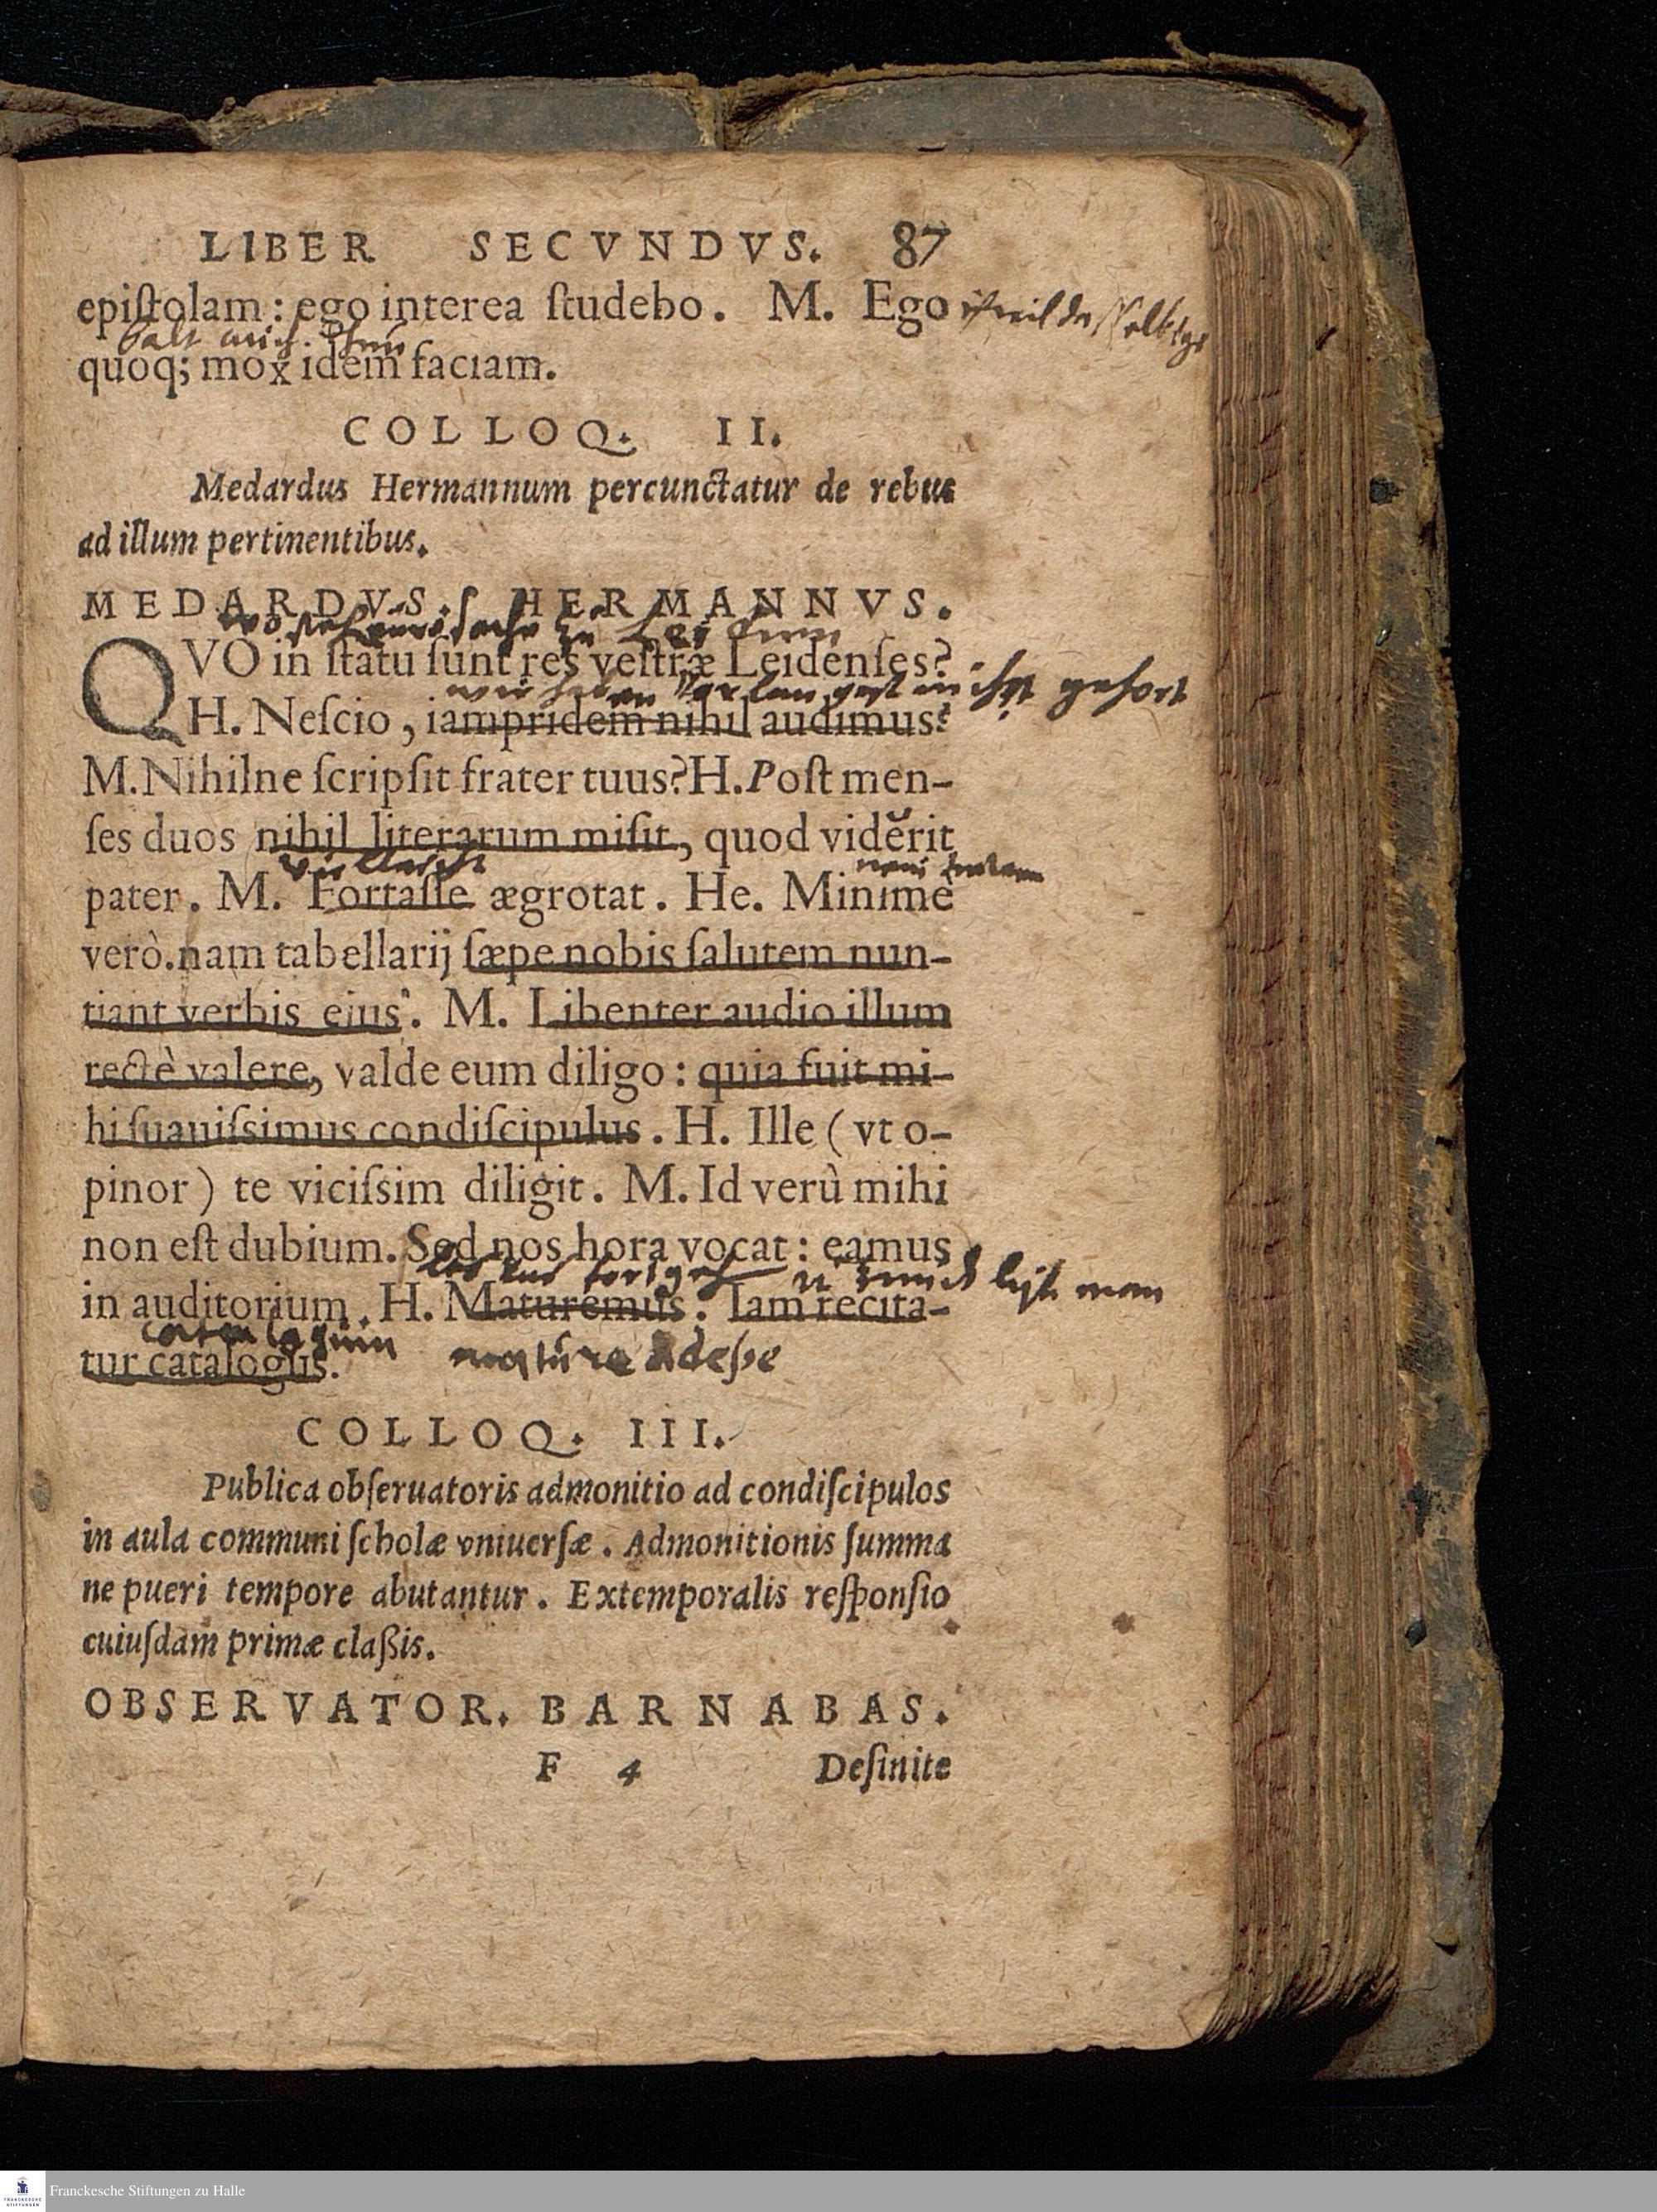 LIBER SECVNDVS. 87
epiſtolam: ego interea ſtudebo. M. Ego
quoq; mox idem faciam.
COLLOQ. II.
Medardus Hermannum percunctatur de rebus
ad illum pertinentibus.
MEDARDVS. HERMANNVS.
QVO in ſtatu ſunt res veſtræ Leidenſes?
nicht gehort
H. Neſcio, iampridem nihil audimus.
M. Nihilne ſcripſit frater tuus? H. Poſt men-
ſes duos nihil literarum miſit, quod viderit
vielleicht
pater. M. Fortaſſe ægrotat. He. Minimè
verò. nam tabellarij ſæpe nobis ſalutem nun-
tiant verbis ejus. M. Libenter audio illum
rectè valere, valde eum diligo: quia fuit mi-
hi ſuauiſsimus condiſcipulus. H. Ille (vt o-
pinor) te viciſsim diligit. M. Id verù mihi
non eſt dubium. Sed nos hora vocat: eamus
in auditorium. H. Maturemus. Iam recita-
tur catalogus.
COLLOQ. III.
Publica obſeruatoris admonitio ad condiſcipulos
in aula communi ſcholæ vniuerſæ. Admonitionis ſumma
ne pueri tempore abutantur. Extemporalis reſponſio
cuiuſdam primæ claßis.
OBSERVATOR. BARNABAS.
F 4 Deſinite
FRANCKESCHE STIFTUNGEN
Franckesche Stiftungen zu Halle